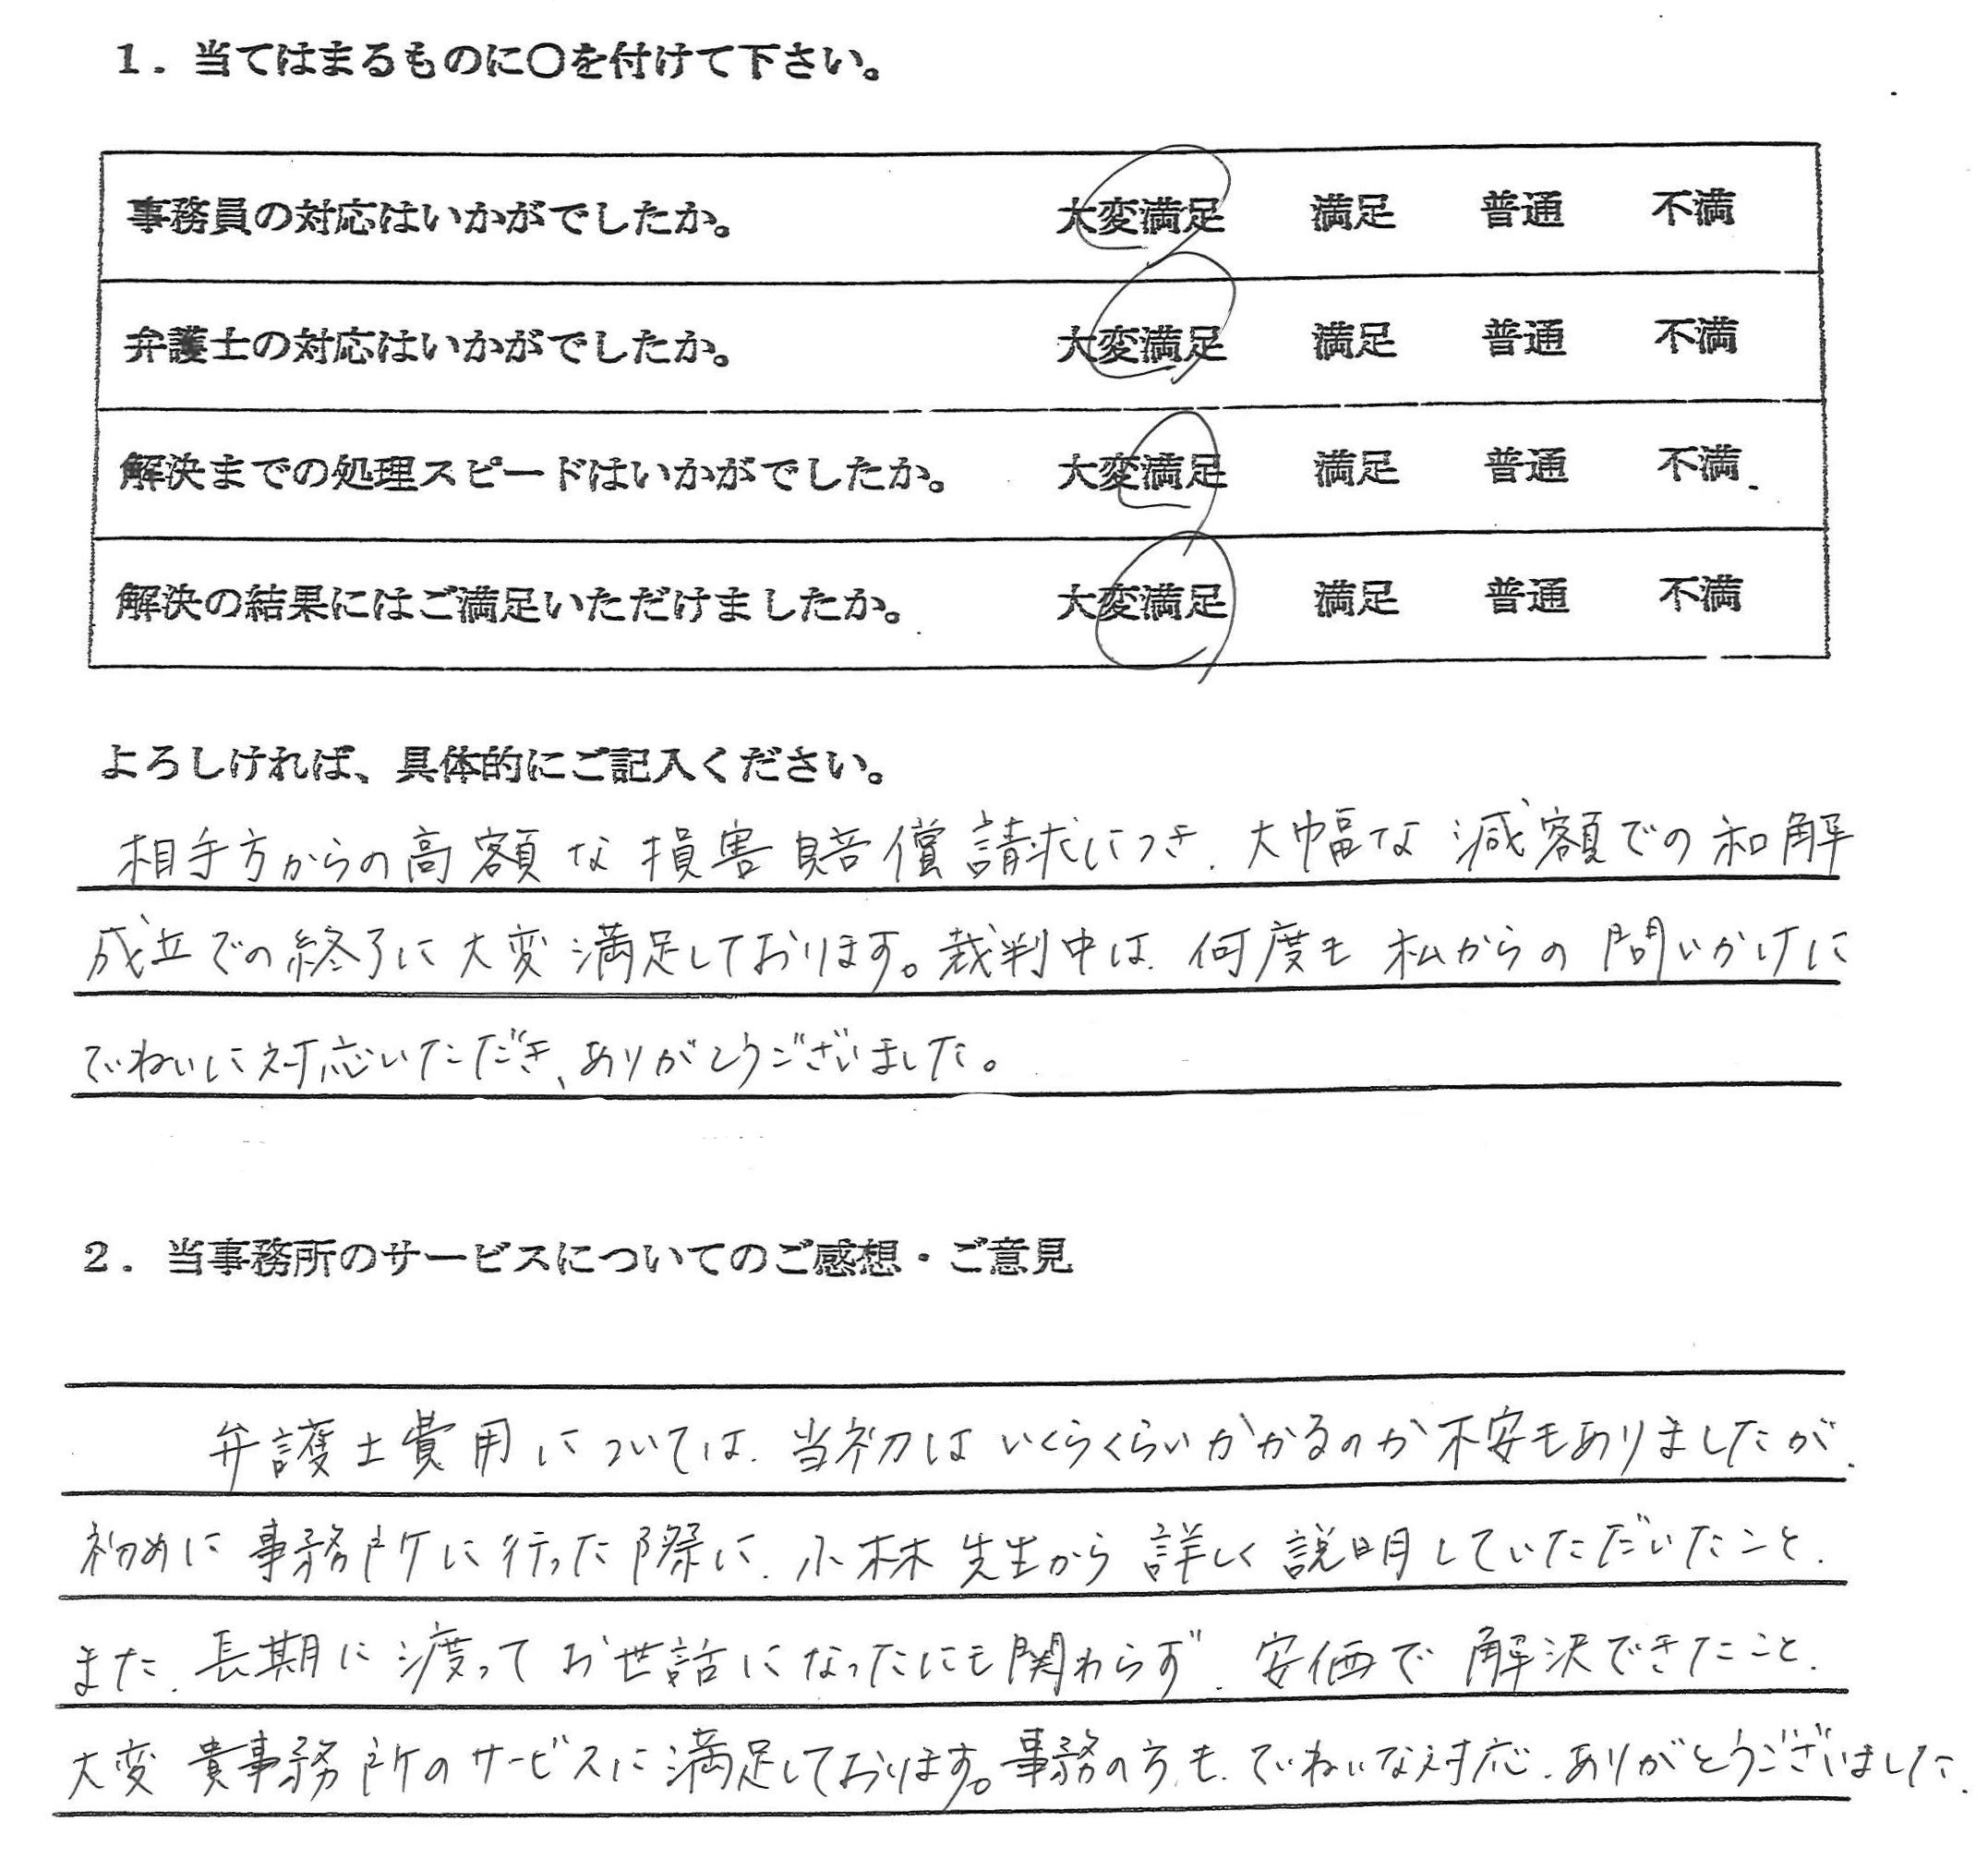 １．当てはまるものに〇を付けて下さい。
事務員の対応はいかがでしたか。 大変満足 満足 普通 不満
弁護士の対応はいかがでしたか。 大変満足 満足 普通 不満
解決までの処理スピードはいかがでしたか。 大変満足 満足 普通 不満
解決の結果にはご満足いただけましたか。 大変満足 満足 普通 不満
よろしければ、具体的にご記入ください。
相手方からの高額な損害賠償請求につき、大幅な減額での和解
成立での終了に大変満足しております。裁判中は、何度も私からの問いかけに
ていねいに対応いただき、ありがとうございました。
２．当事務所のサービスについてのご感想・ご意見
弁護士費用については、当初はいくらくらいかかるのか不安もありましたが、
初めに事務所に行った際に、小林先生から詳しく説明していただいたこと、
また、長期に渡ってお世話になったにも関わらず、安価で解決できたこと、
大変貴事務所のサービスに満足しております。事務の方も、ていねいな対応、ありがとうございました。